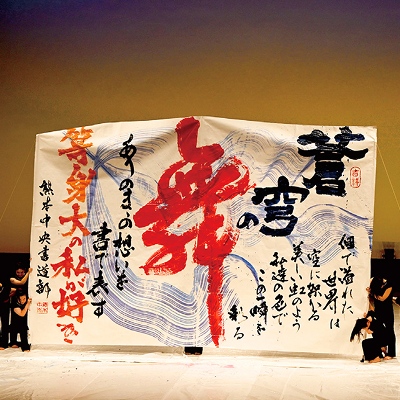 蒼穹の
舞
個で溢れた
世界は
空に架かる
美しい虹のよう
私達の色で
この瞬を
彩る
ありのまゝの想いを
書で表す
等身大の私が好き
熊本中央書道部